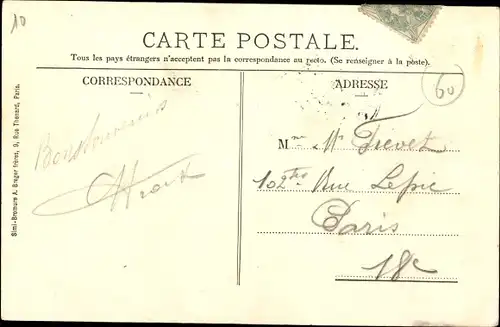 10
CARTE POSTALE.
Tous les pays étrangers n'acceptent pas la correspondance au recto. (Se renseigner à la poste).
CORRESPONDANCE
ADRESSE
60
Bons Souvenirs
M Mr Trevet
102 Rue Lepic
Paris
18e
Simi-Bromure A. Breger frères, 9, Rue Thénard, Paris.